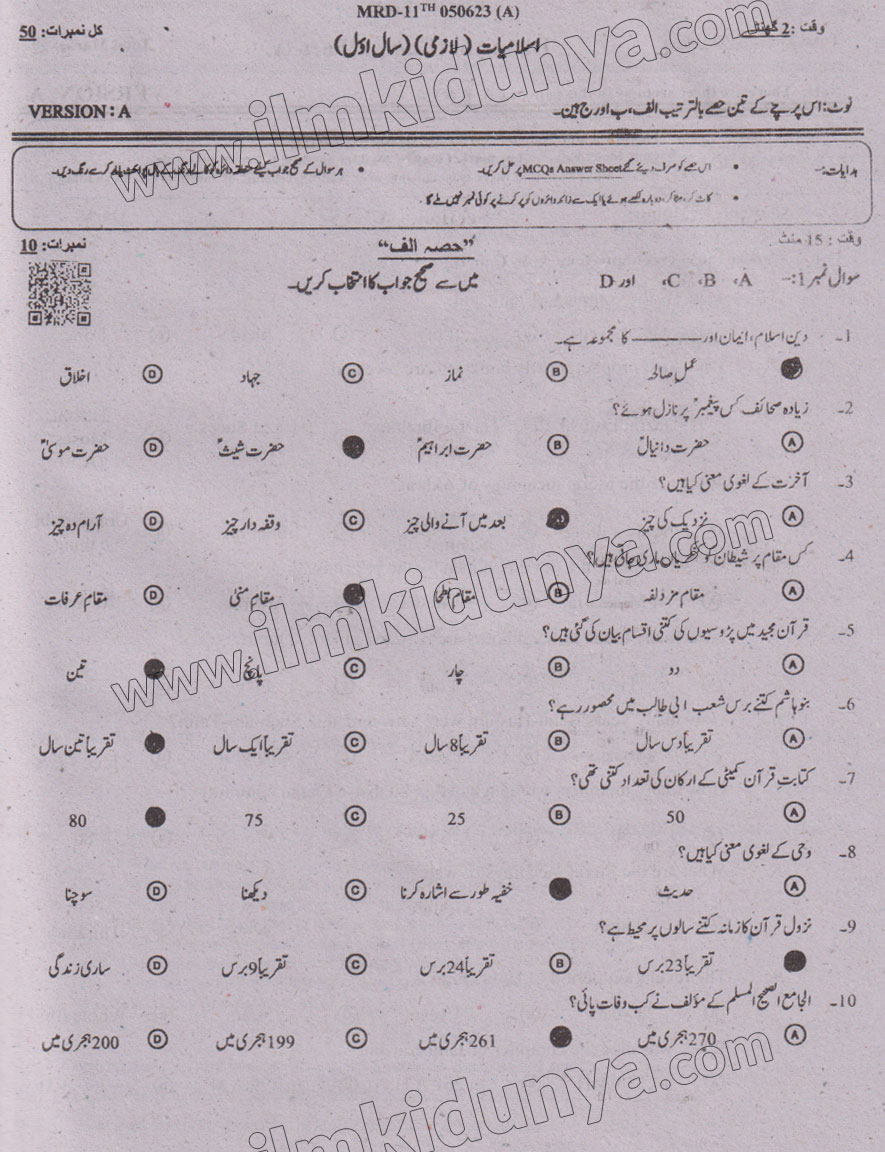 MRD-11TH 050623 (A)
وقت : 2 گھنٹے کل نمبرات: 50
اسلامیات (لازمی) (سال اوّل)
نوٹ: اس پرچے کے تین حصے بالترتیب الف، ب اور ج ہیں۔ VERSION : A
ہدایات:- • اس حصے کو صرف دیئے گئے MCQs Answer Sheet پر حل کریں۔ • ہر سوال کے صحیح جواب کیلئے متعلقہ دائرہ کو کالے سے رنگ دیں۔
• کاٹ کر، مٹا کر، دوبارہ لکھے ہوئے یا ایک سے زائد دائروں کو پر کرنے پر کوئی نمبر نہیں ملے گا
وقت : 15 منٹ "حصہ الف" نمبرات: 10
سوال نمبر 1:- A، B، C، اور D میں سے صحیح جواب کا انتخاب کریں۔
1۔ دین اسلام، ایمان اور ــــــــــ کا مجموعہ ہے۔
عمل صالحہ B نماز C جہاد D اخلاق
2۔ زیادہ صحائف کس پیغمبرؑ پر نازل ہوئے؟
A حضرت دانیالؑ B حضرت ابراہیمؑ حضرت شیثؑ D حضرت موسیٰؑ
3۔ آخرت کے لغوی معنی کیا ہیں؟
A نزدیک کی چیز بعد میں آنے والی چیز C وقفہ دار چیز D آرام دہ چیز
4۔ کس مقام پر شیطان کو کنکریاں ماری جاتی ہیں؟
A مقام مزدلفہ B مقام بطحا مقام منیٰ D مقام عرفات
5۔ قرآن مجید میں پڑوسیوں کی کتنی اقسام بیان کی گئی ہیں؟
A دو B چار C پانچ تین
6۔ بنو ہاشم کتنے برس شعب ابی طالب میں محصور رہے؟
A تقریباً دس سال B تقریباً 8 سال C تقریباً ایک سال تقریباً تین سال
7۔ کتابتِ قرآن کمیٹی کے ارکان کی تعداد کتنی تھی؟
A 50 B 25 C 75 80
8۔ وحی کے لغوی معنی کیا ہیں؟
A حدیث خفیہ طور سے اشارہ کرنا C دیکھنا D سوچنا
9۔ نزول قرآن کا زمانہ کتنے سالوں پر محیط ہے؟
تقریباً 23 برس B تقریباً 24 برس C تقریباً 9 برس D ساری زندگی
10۔ الجامع الصحیح المسلم کے مؤلف نے کب وفات پائی؟
A 270 ہجری میں 261 ہجری میں C 199 ہجری میں D 200 ہجری میں
www.ilmkidunya.com
www.ilmkidunya.com
ilmkidunya.com